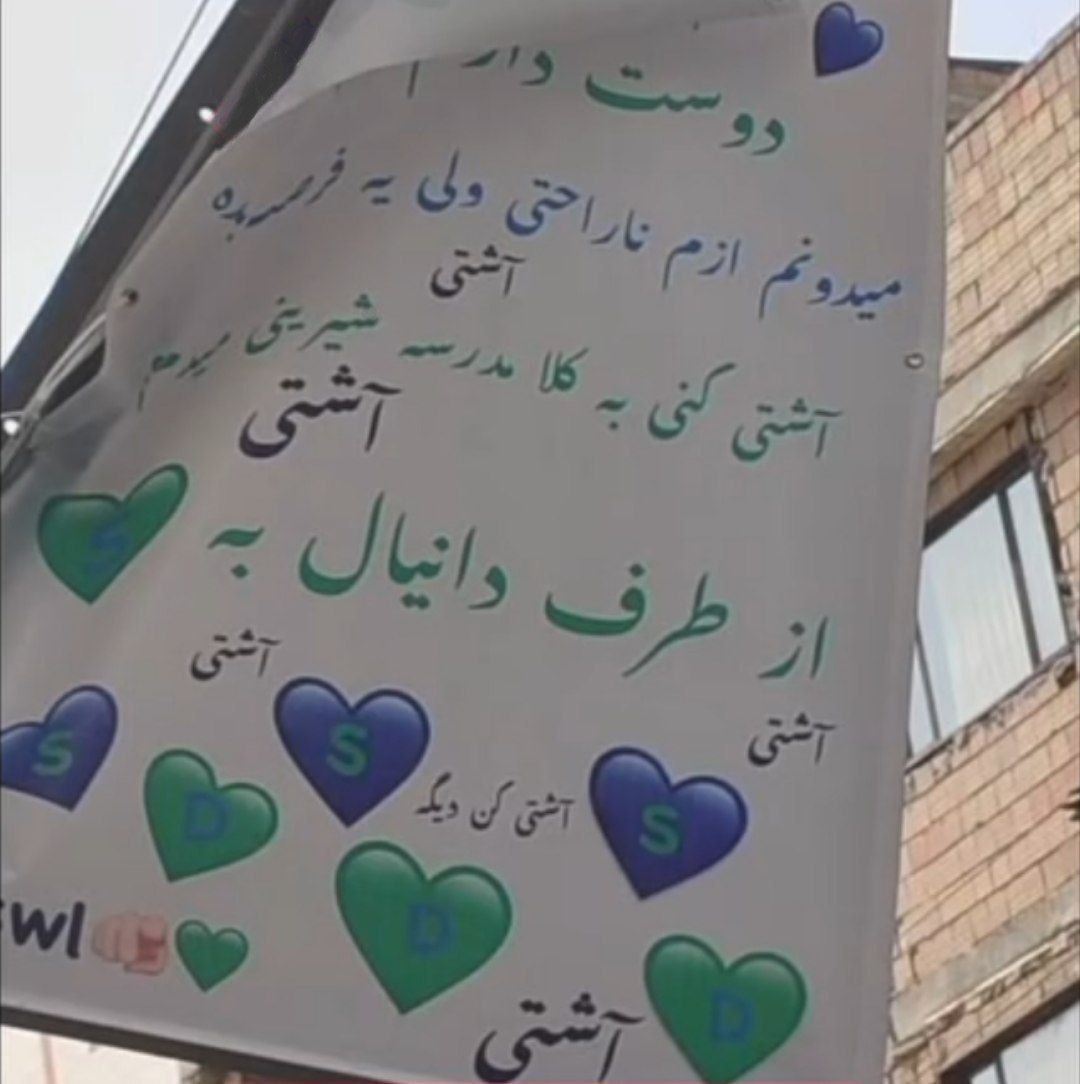 دوست دارم
میدونم ازم ناراحتی ولی یه فرصت بده
آشتی
آشتی کنی به کلا مدرسه شیرینی میدم
آشتی
از طرف دانیال به S
آشتی
آشتی
S
S
D
آشتی کن دیگه
S
D
wl
D
آشتی